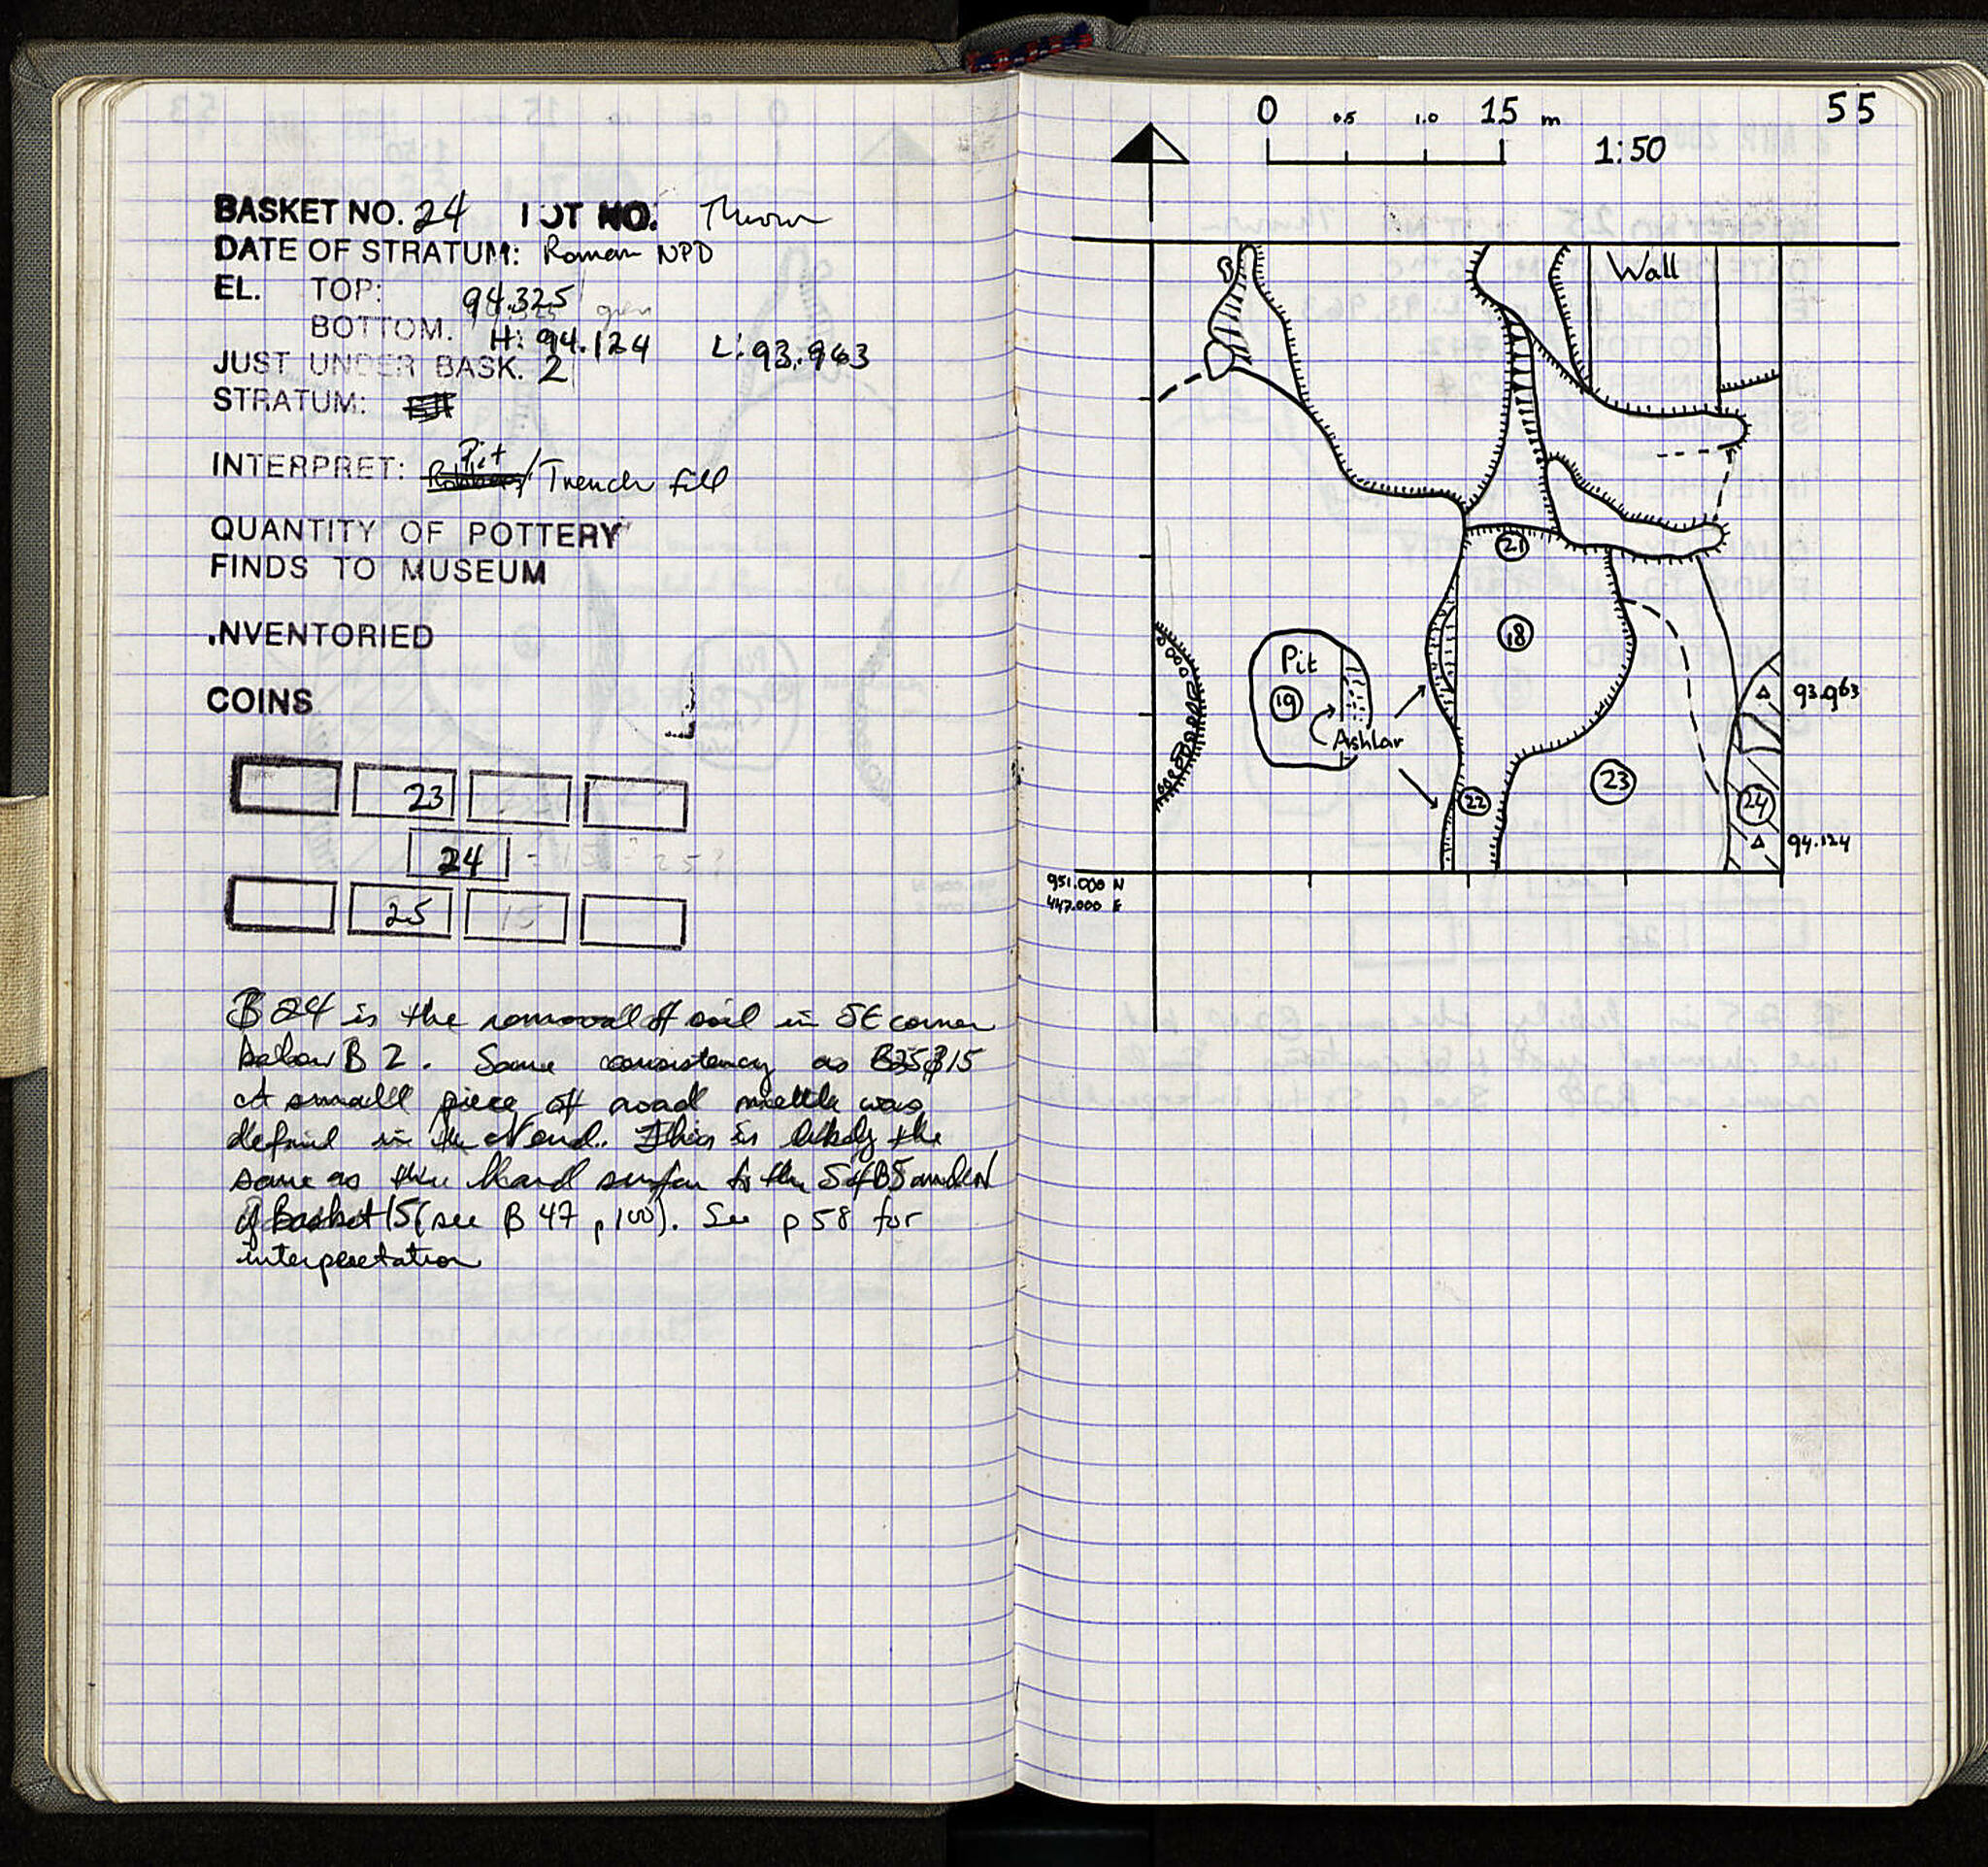 BASKET NO. 24 LOT NO. Thrown
DATE OF STRATUM: Roman NPD
EL. TOP: 94.325
BOTTOM. H: 94.124 L: 93.963
JUST UNDER BASK. 2
STRATUM:
INTERPRET: Pit / Trench fill
QUANTITY OF POTTERY
FINDS TO MUSEUM
INVENTORIED
COINS
23
24
25 15
B 24 is the removal of soil in SE corner
below B 2. Same consistency as B25 & 15
A smalll piece of road mettle was
defind in the N end. This is likely the
same as the hard surface to the S of B5 and N
of Basket 15 (see B 47 p 100). See p 58 for
interpretation
55
0 0.5 1.0 15 m
1:50
Wall
21
18
Pit
19
Ashlar
22
23
24
93.963
94.124
951.000 N
447.000 E